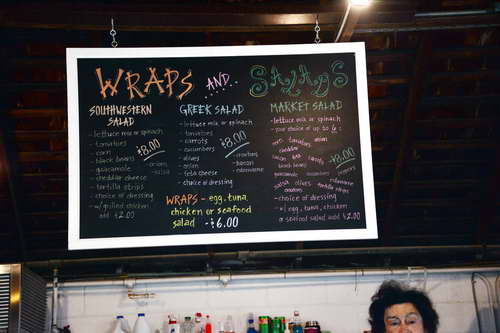 WRAPS AND SALADS
SOUTHWESTERN
SALAD
- lettuce mix or spinach
- tomatoes
- corn
- black beans
- guacamole
- cheddar cheese
- tortilla strips
- choice of dressing
- w/ grilled chicken
add $2.00
$8.00
onions
salsa
GREEK SALAD
- lettuce mix or spinach
- tomatoes
- carrots
- cucumbers
- olives
- onion
- feta cheese
- choice of dressing
$8.00
croutons
bacon
edamame
WRAPS - egg, tuna,
chicken or seafood
salad - $6.00
MARKET SALAD
- lettuce mix or spinach
- your choice of up to 6:
corn tomatoes
cheddar
black beans
carrots
guacamole
peppers
edamame
salsa olives
tortilla strips
croutons
$8.00
- choice of dressing
- w/ egg, tuna, chicken
or seafood salad add $2.00